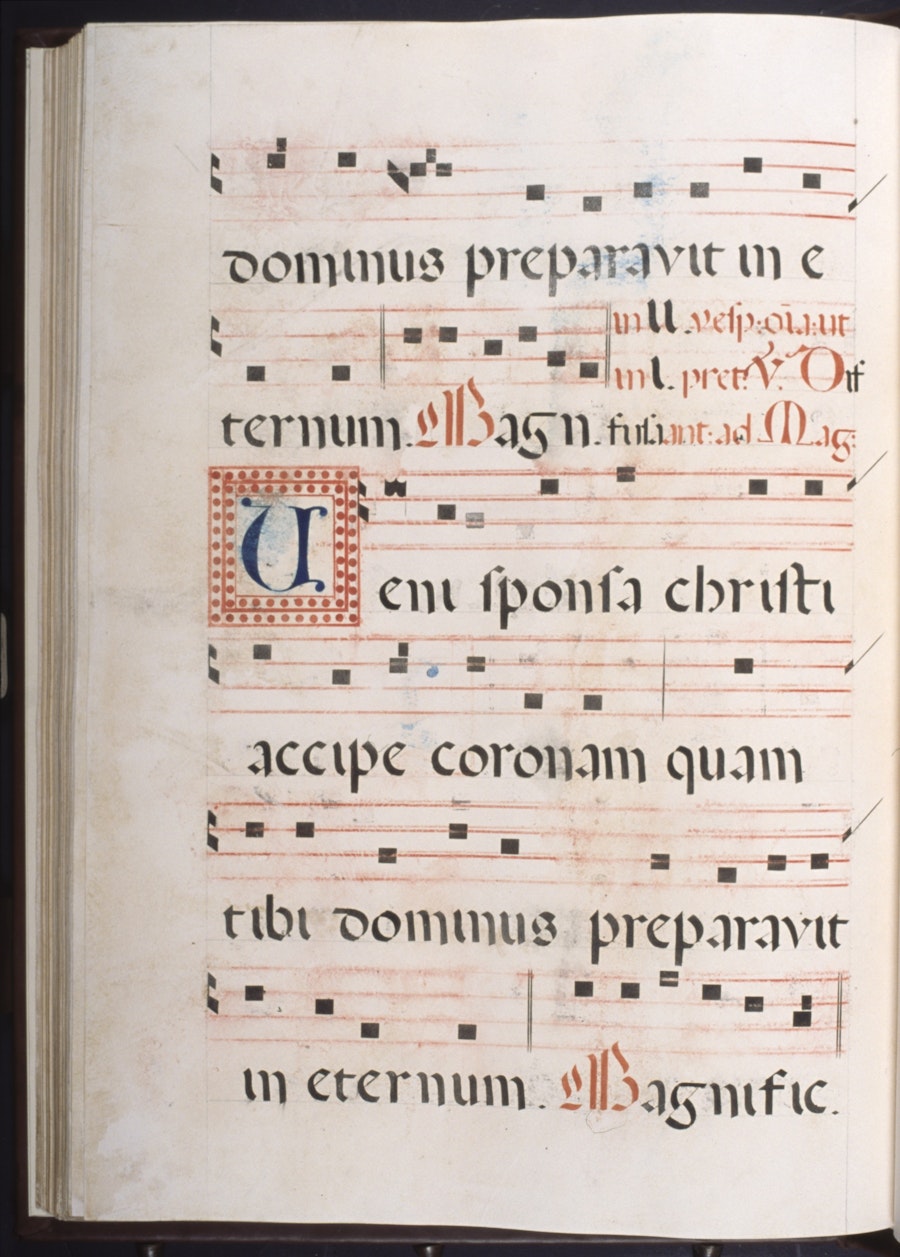 dominus preparavit in e
in II. vesp: oīa: ut
in l. pret. V. Dif
ternum. Magn. fusa ant: ad Mag:
Veni sponsa christi
accipe coronam quam
tibi dominus preparavit
in eternum. Magnific.